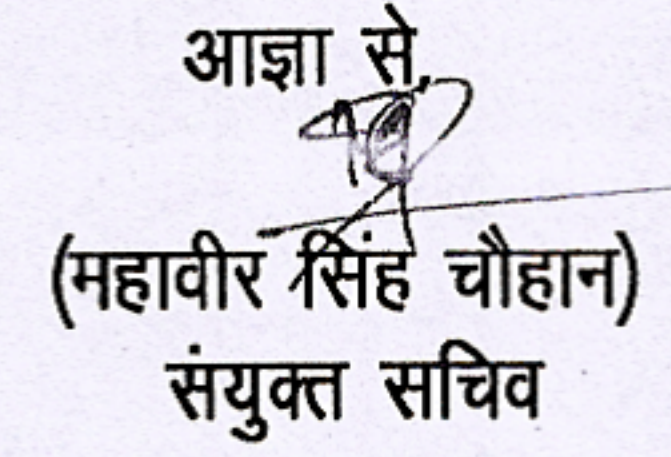 आज्ञा से,
(महावीर सिंह चौहान)
संयुक्त सचिव